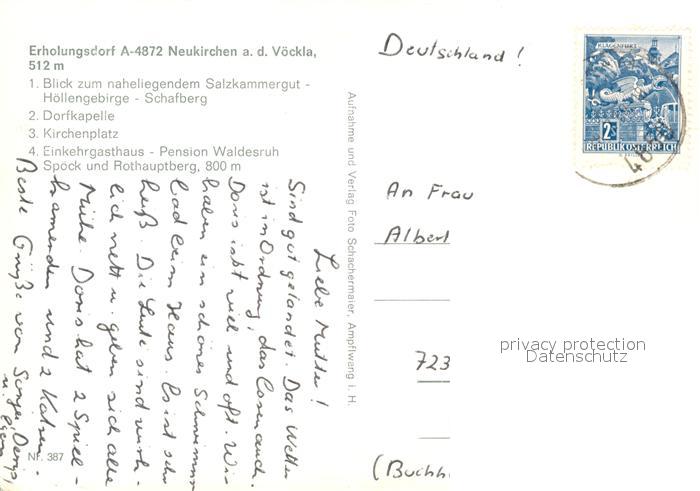 Erholungsdorf A-4872 Neukirchen a. d. Vöckla,
512 m
1. Blick zum naheliegendem Salzkammergut -
Höllengebirge - Schafberg
2. Dorfkapelle
3. Kirchenplatz
4. Einkehrgasthaus - Pension Waldesruh
Spöck und Rothauptberg, 800 m
Liebe Mutter!
Sind gut gelandet. Das Wetter
ist in Ordnung, das Essen auch.
Doris ißt viel und oft. Wir
haben ein schönes Schwimm-
bad beim Haus. Es ist sehr
heiß. Die Leute sind wirk-
lich nett u. geben sich alle
Mühe. Doris hat 2 Spiel-
kameraden und 2 Katzen.
Beste Grüße von Doris
u.
Nr. 387
Aufnahme und Verlag Foto Schachermaier, Ampflwang i. H.
Deutschland!
KLAGENFURT
2 S
REPUBLIK ÖSTERREICH
An Frau
Albert
723
(Buchh
privacy protection
Datenschutz